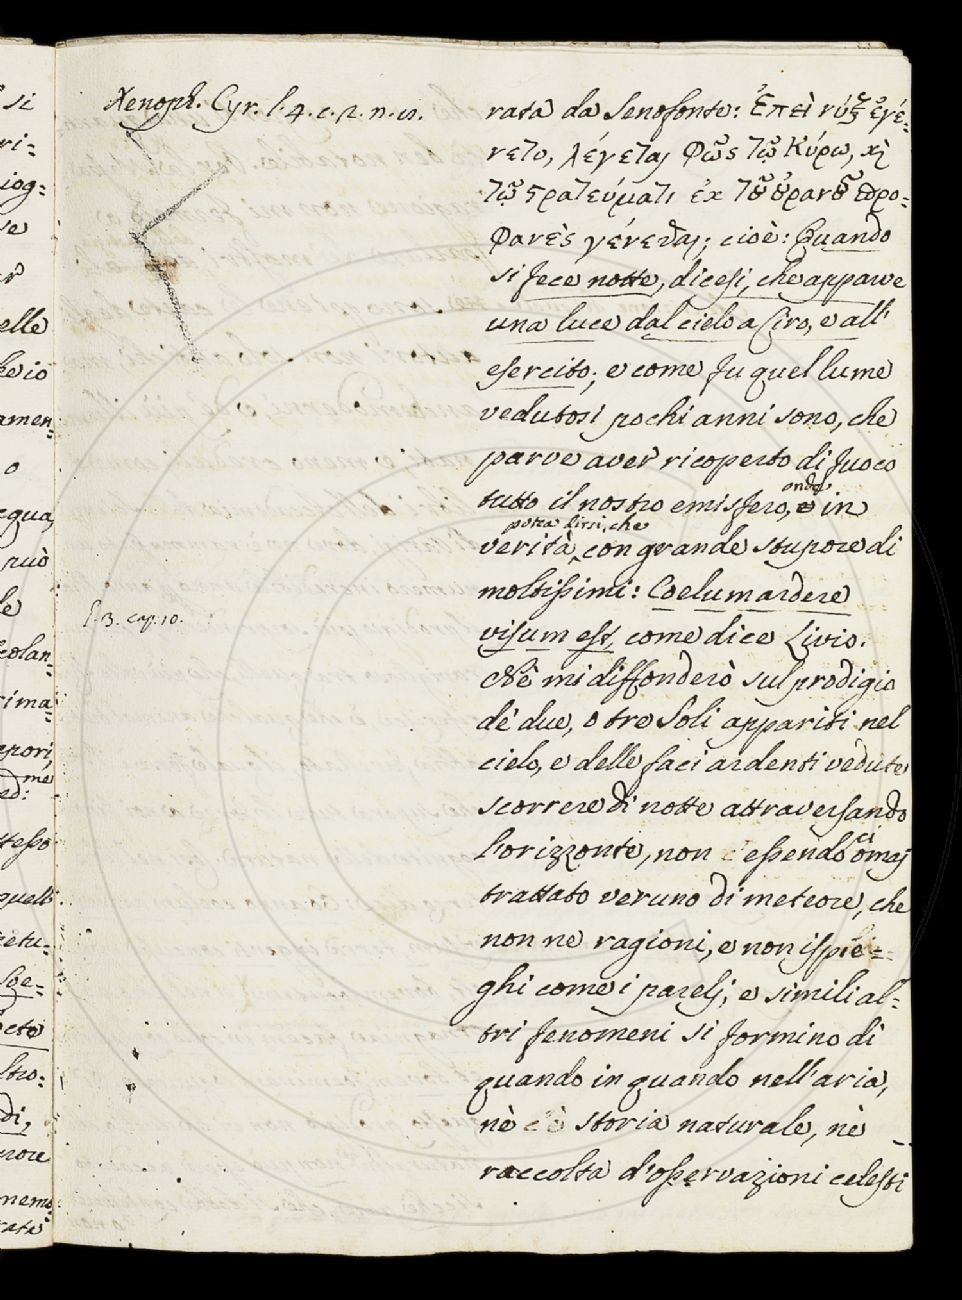 Xenoph. Cyr. l. 4. c. 2. n.
rata da Senofonte: Ἐπεὶ νὺξ ἐγέ-
νετο, λέγεται φῶς τῷ Κύρῳ, καὶ
τῷ στρατεύματι ἐκ τοῦ οὐρανοῦ προ-
φανὲς γένεσθαι; cioè: Quando
si fece notte, dicesi, che apparve
una luce dal cielo a Ciro, e all'
esercito; e come fu quel lume
vedutosi pochi anni sono, che
parve aver ricoperto di fuoco
onde
tutto il nostro emisfero, e in
potea dirsi, che
verità, con grande stupore di
moltissimi: Coelum ardere
l. 3. cap. 10.
visum est, come dice Livio.
Nè mi diffonderò sul prodigio
de' due, o tre Soli appariti nel
cielo, e delle faci ardenti vedute
scorrere di notte attraversando
ci
l'orizzonte, non essendo omaj
trattato veruno di meteore, che
non ne ragioni, e non ispie-
ghi come i parelj, e simili al-
tri fenomeni si formino di
quando in quando nell'aria,
nè storia naturale, nè
raccolta d'osservazioni celesti
si
ri=
iog=
ve
er
elle
he io
amen=
o
può
le
colan=
rima
apori,
me
ed:
stesso
quelli
retu=
ecto
di,
more
nemo
rata